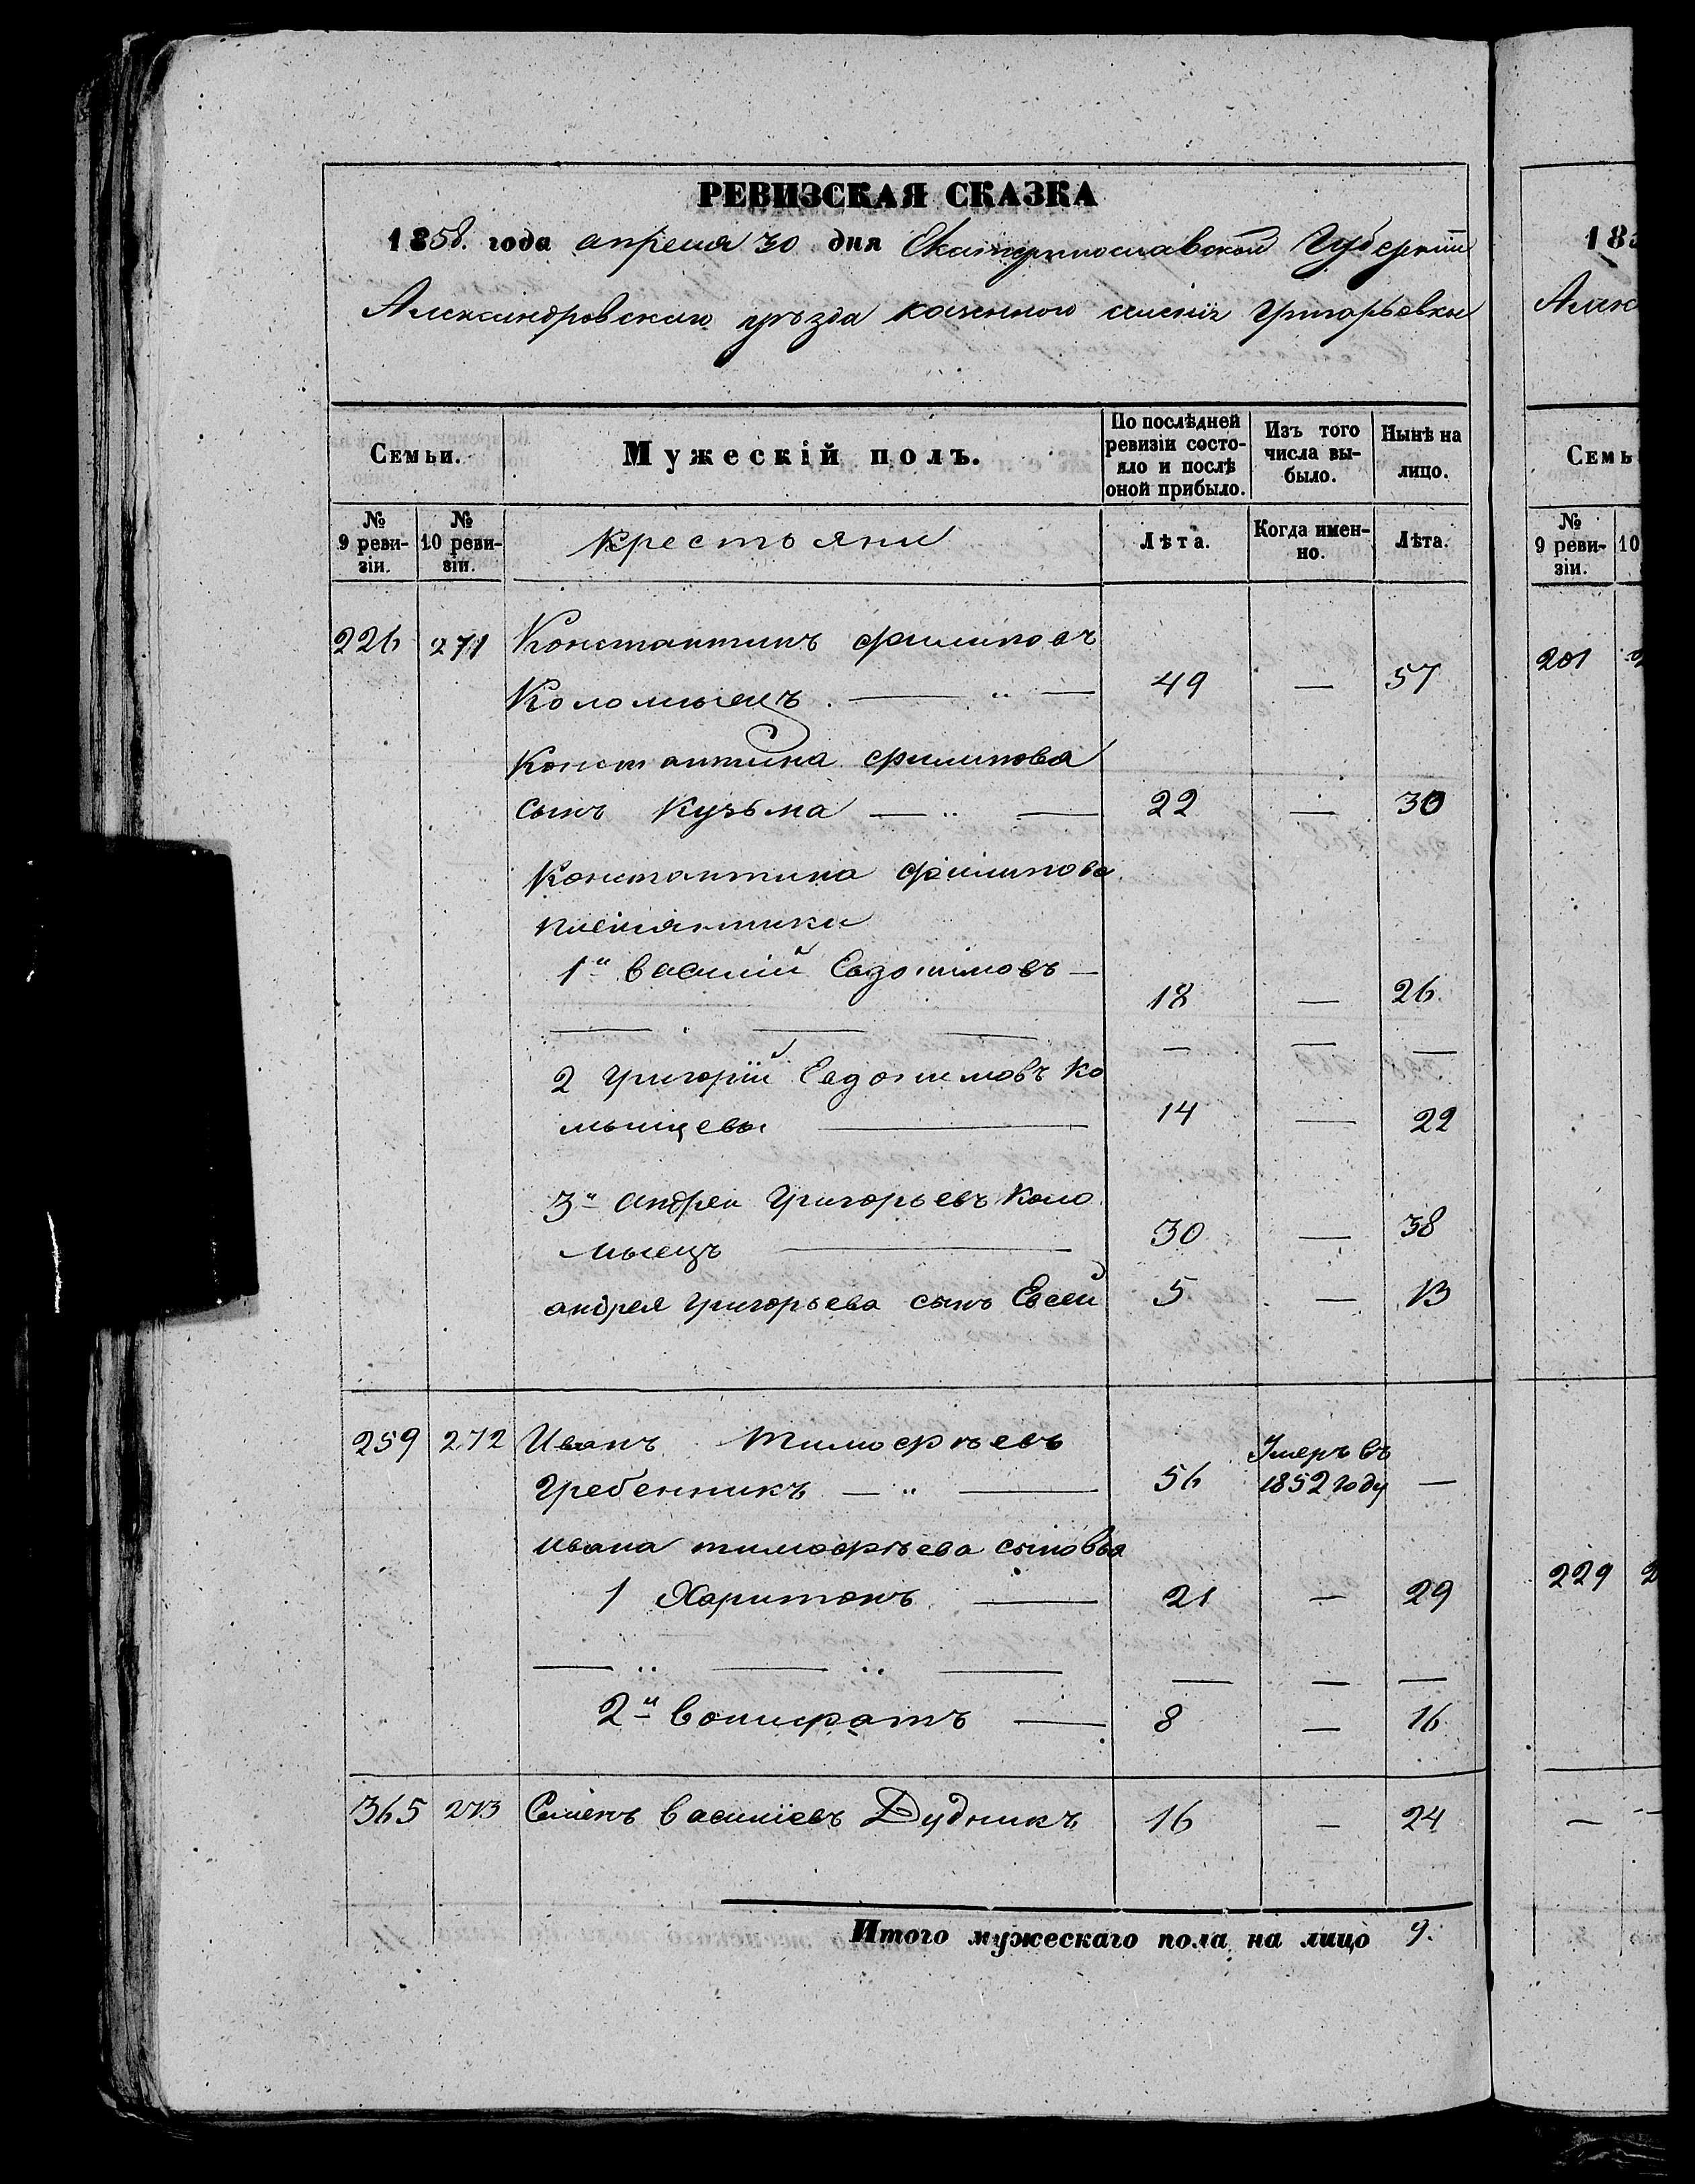 РЕВИЗСКАЯ СКАЗКА
1858. года апреля 30 дня Екатеринославской Губернии
Александровскаго уѣзда казенного селенія Григорьевки
Семьи.
Мужескій полъ.
По послѣдней ревизіи состояло и послѣ оной прибыло.
Изъ того числа выбыло.
Нынѣ на лицо.
№ 9 ревизіи.
№ 10 ревизіи.
Крестьяни
Лѣта.
Когда именно.
Лѣта.
226 271 Константинъ Филиповъ
Коломыецъ. — „ — 49 — 57
Константина Филипова
сынъ Кузьма — „ — 22 — 30
Константина Филипова
племянники
1й Василий Евдокимовъ — 18 — 26
— — — — — —
2 Григорій Евдокимовъ Ко
мыйцевы — 14 — 22
3й Андреи Григорьевъ Коло
мыецъ — 30 — 38
андрея Григорьева сынъ Евсей 5 — 13
259 272 Иванъ Тимофѣевъ
Гребенникъ — „ — 56 Умеръ въ 1852 году —
ивана тимофѣева сыновья
1 Харитонъ — 21 — 29
— „ — „ — — — —
2й Вонифатъ — 8 — 16
365 273 Семенъ Василіевъ Дудникъ 16 — 24
Итого мужескаго пола на лицо 9.
185
Алек
Семь
№ 9 ревизіи.
10
201
229